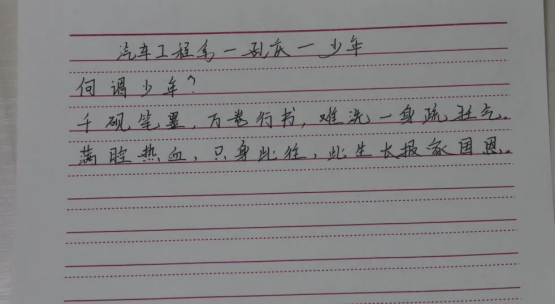 汽车工程系一孔辰一少年
何谓少年?
千砚笔墨，万卷行书，难洗一身疏狂气。
满腔热血，只身此往，此生长报家国恩。